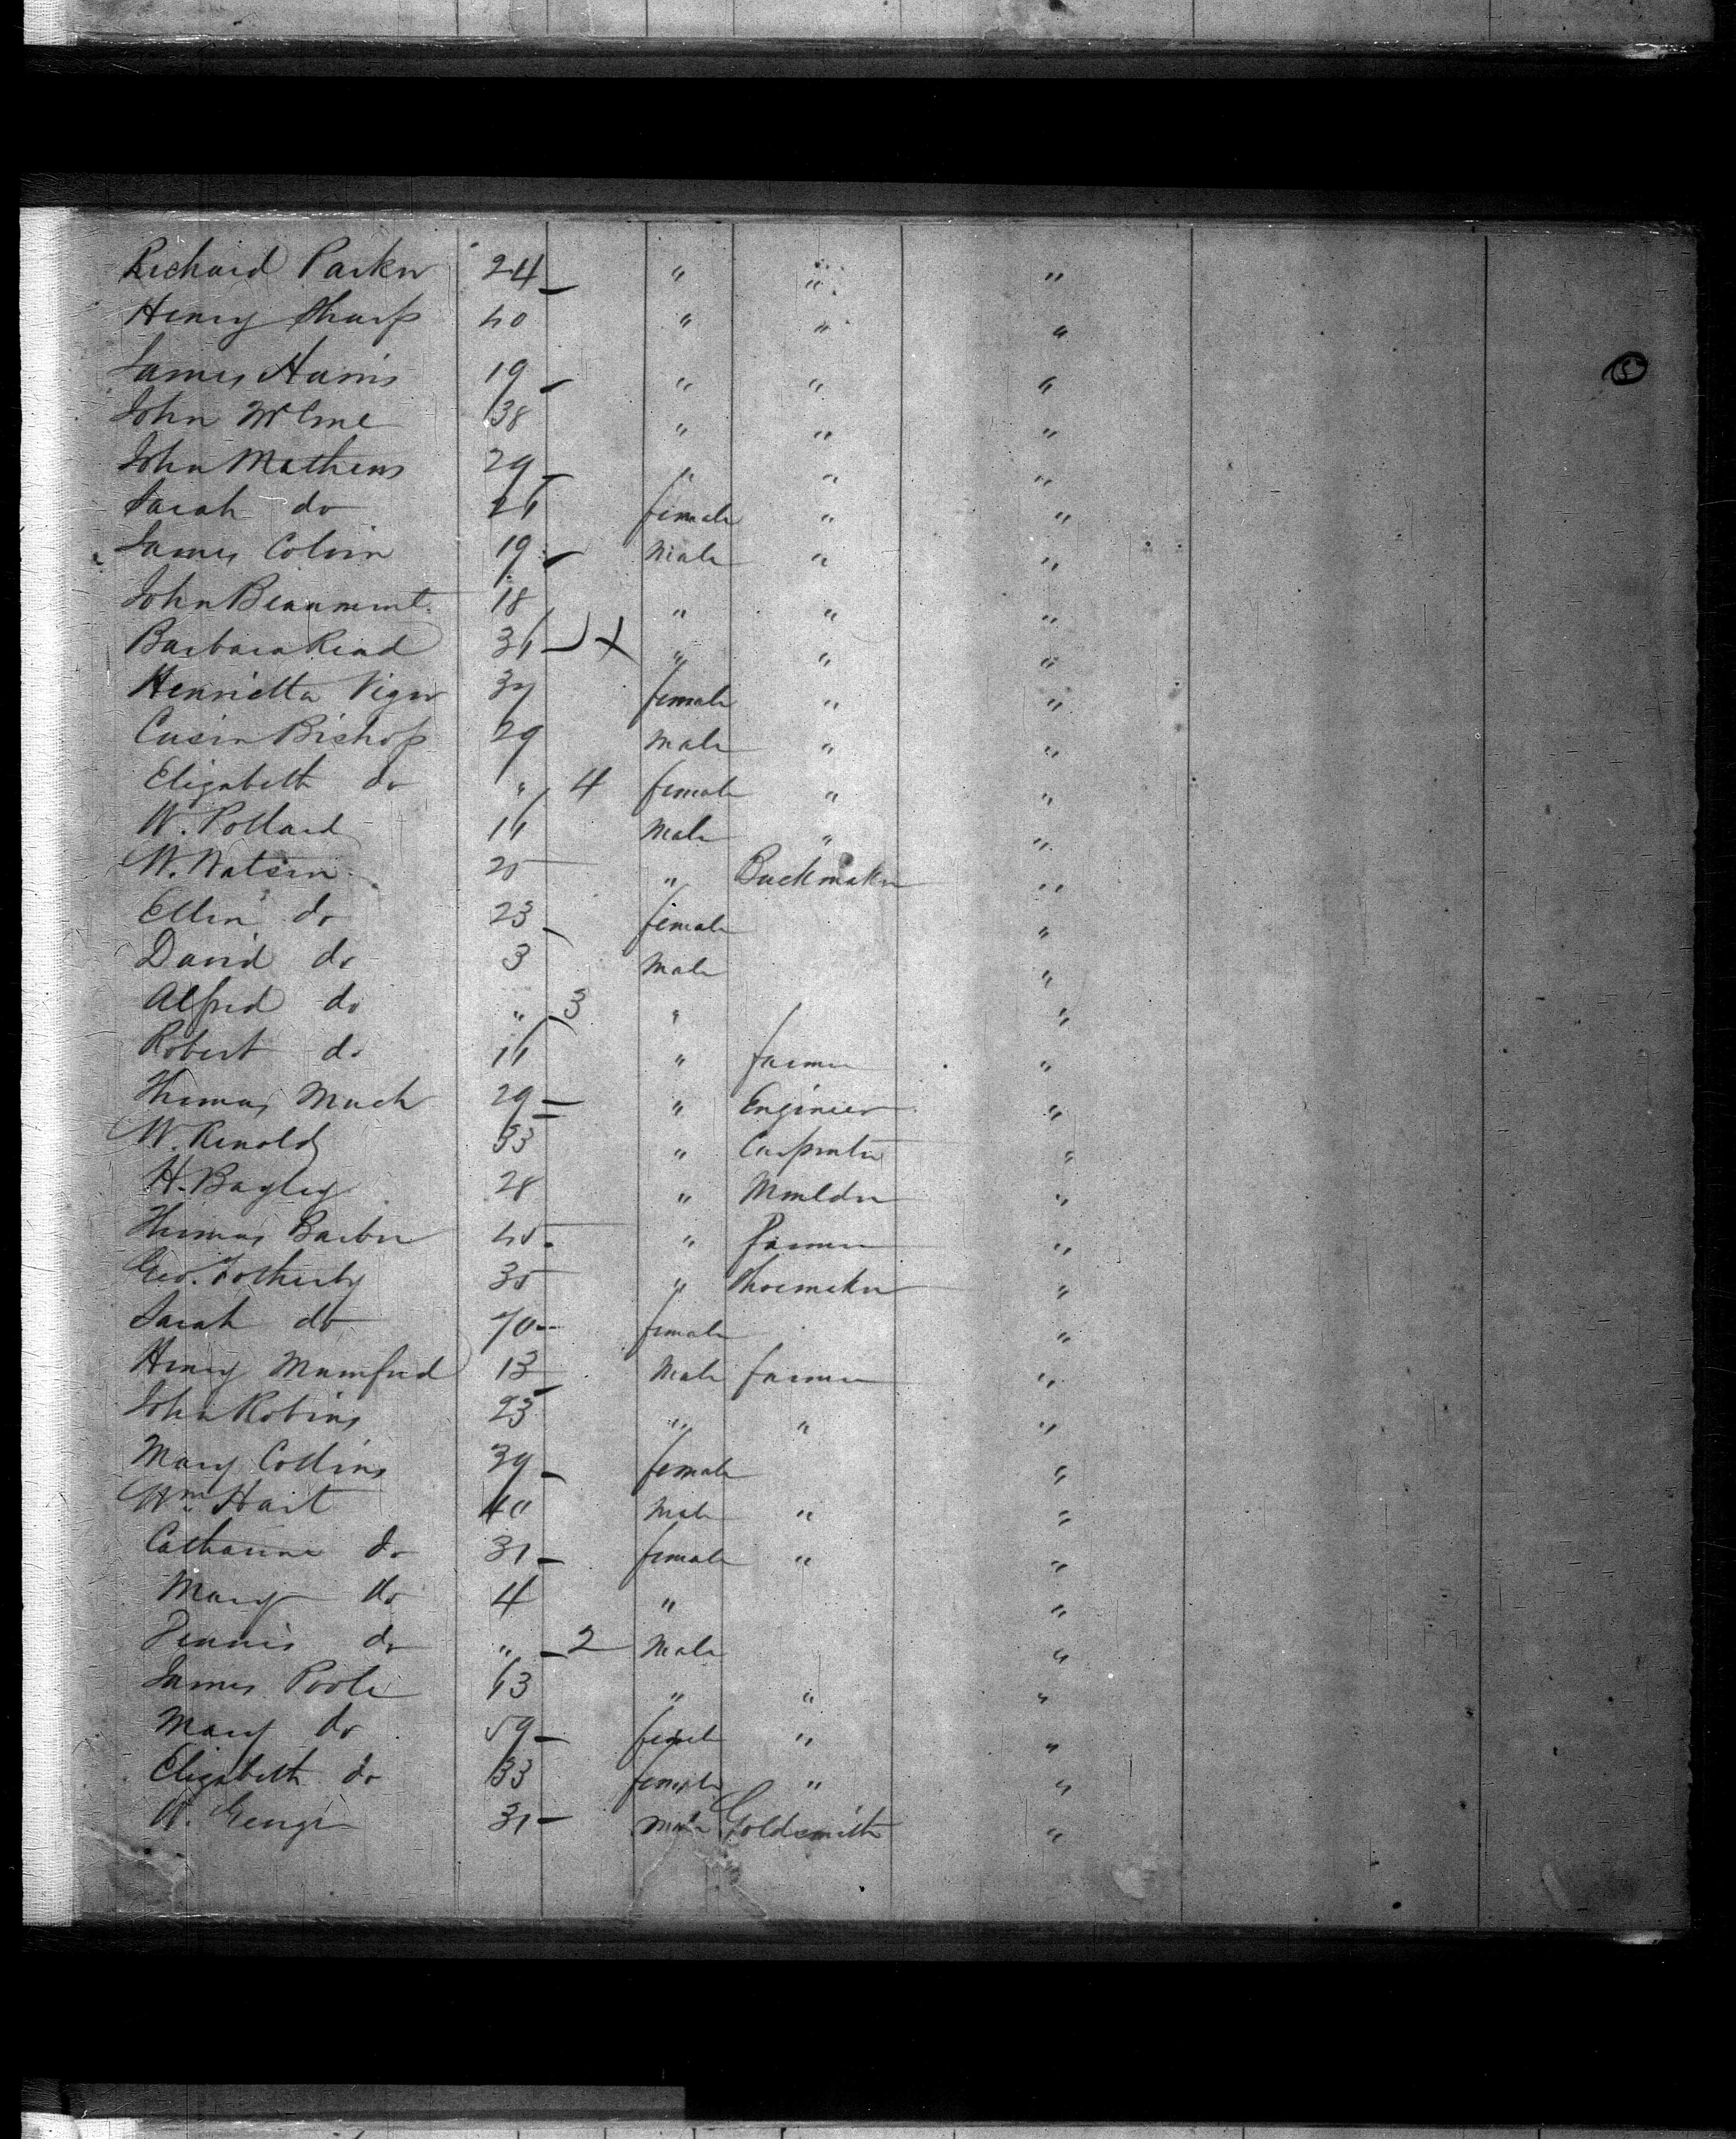 Richard Parker 24 " " "
Henry Sharp 40 " " "
James Harris 19 " " "
John 38 " " "
John Mathews 29 " " "
Sarah do 26 female " "
James Colvin 19 Male " "
John Beaumont 18 " " "
Barbara Read 36 " " "
Henrietta Vigor 37 female " "
Bishop 29 Male " "
Elizabeth do " 4 female " "
W. Pollard 16 Male " "
W. Watson 25 " "
Ellen do 23 female "
David do 3 Male "
Alfred do " 3 " "
Robert do 16 " farmer "
Thomas 29 " Engineer "
W. Renolds 33 " Carpenter "
H. Bagley 28 " Moulder "
Thomas Barber 45 " Farmer "
Geo. Fotherby 35 " Shoemaker "
Sarah do 70 female "
Henry Mumford 13 Male farmer "
John Robins 23 " " "
Mary Collins 39 female "
Wm Hart 40 Male " "
Catharine do 31 female " "
Mary do 4 " "
Dennis do " 2 Male "
James Poole 63 " " "
Mary do 59 female " "
Elizabeth do 33 female " "
W. George 31 Male Goldsmith "